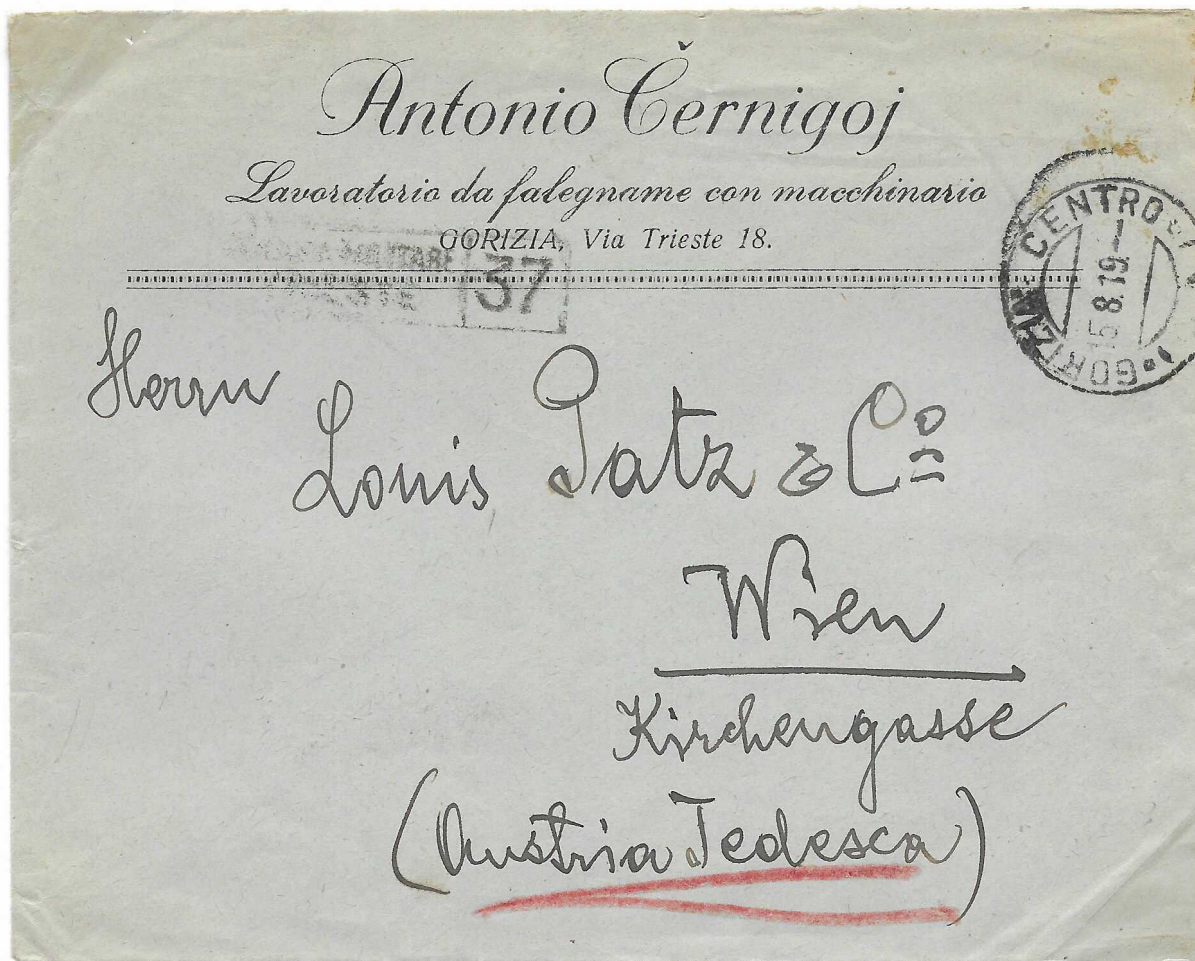 Antonio Černigoj
Lavoratorio da falegname con macchinario
GORIZIA, Via Trieste 18.
MILITARE
37
GORIZIA CENTRO
15.8.19.—
Herrn
Louis Patz & Co
Wien
Kirchengasse
(Austria Tedesca)